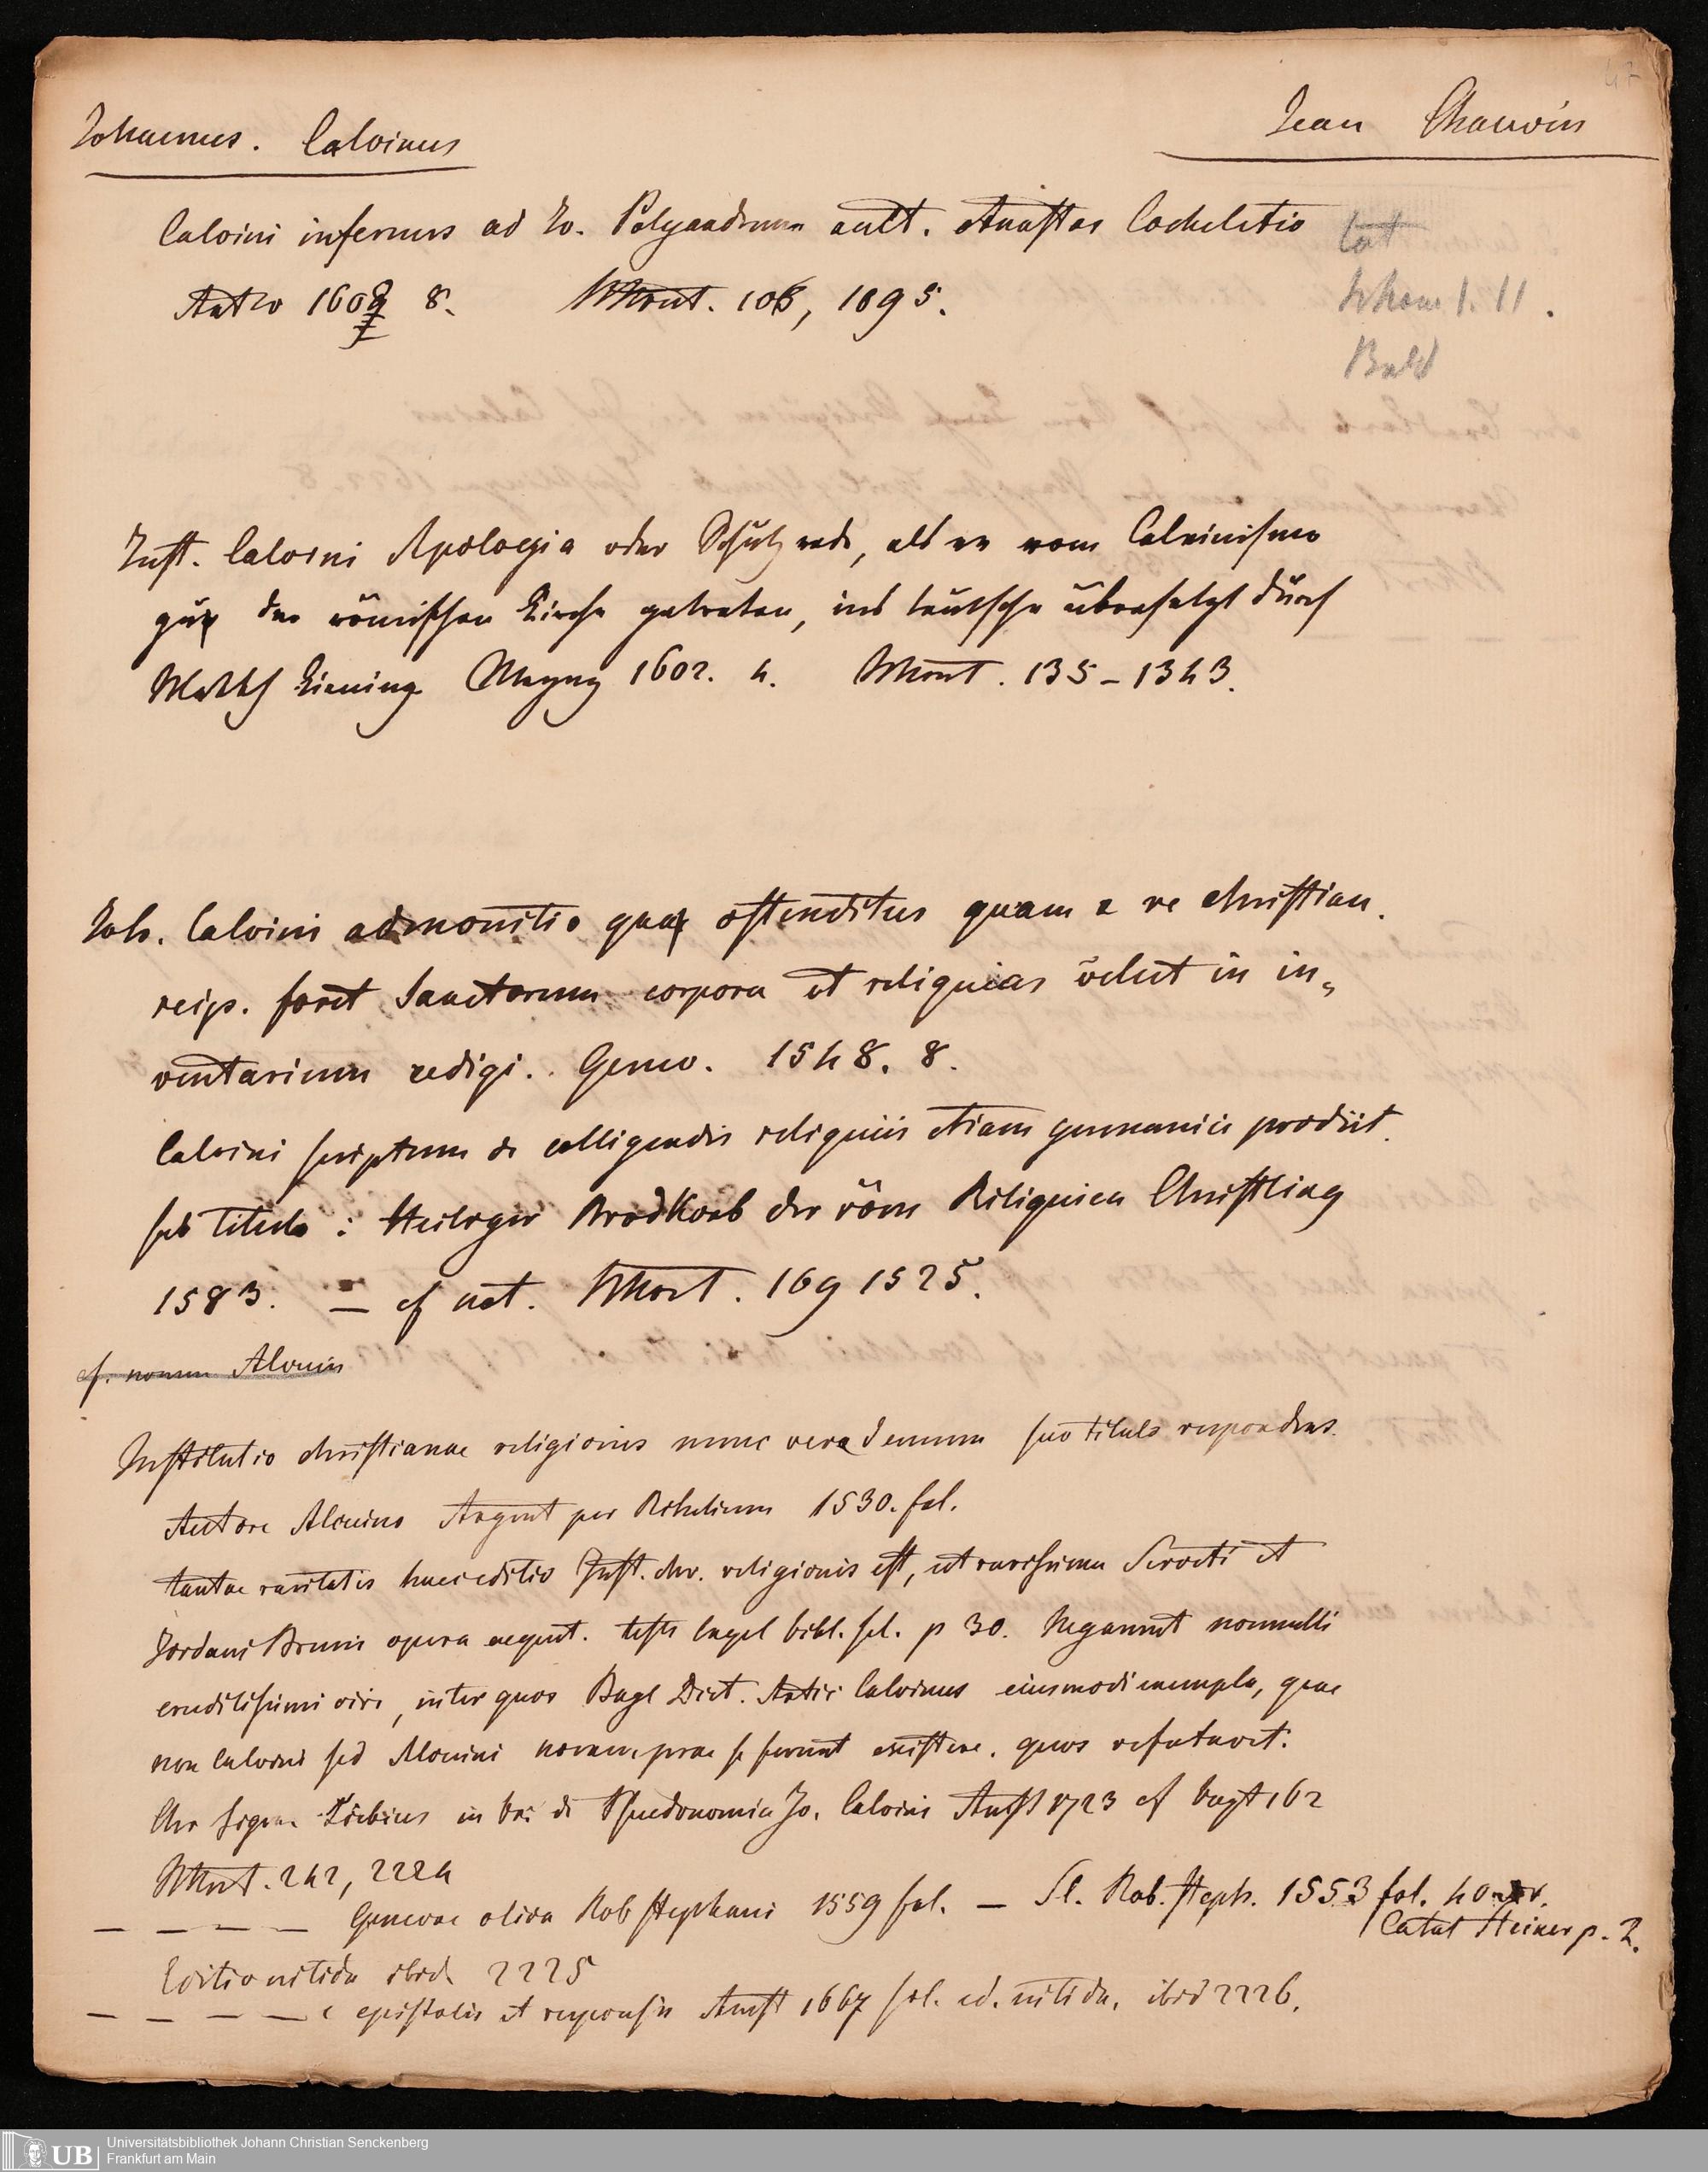 47
Johannes. Calvinus
Jean Chauvin
Calvini infernus ad Jo. Polyandrum auct. Anastas Cocheletio
Cat
Antw 1608 8. Mont. 106, 1095.
1. 11.
Bald
Just. Calvini Apologia oder Schutzrede, als er vom Calvinismo
zur der römischen Kirche getreten, ins teutsche übersetzt durch
Matth Liening Maynz 1602. 4. Mont. 135-1343.
Joh. Calvini admonitio qua ostenditur quam e re christian.
reip. foret Sanctorum corpora et reliquias velut in in-
ventarium redigi. Genev. 1548. 8.
Calvini scriptum de colligendis reliquiis etiam germanice prodiit
sub titulo: Heiliger Brodkorb der röm Reliquien Christling
1583. — cf not. Mont. 169 1525.
cf. nomen Alcuin
Institutio christianae religionis nunc vera demum suo titulo respondens.
Autore Alcuino Argent per Rihelium 1530. fol.
tantae raritatis haec editio Inst. chr. religionis est, ut rarissima Serveti et
Jordani Bruni opera aequet. teste Engel bibl. sel. p 30. Negarunt nonnulli
eruditissimi viri, inter quos Bayl Dict. Calvinus eiusmodi exempla, quae
non Calvini sed Alcuini nomen prae se ferunt existere. quos refutavit.
Chr Sigm. Liebius in de Pseudonomia Jo. Calvini Amst 1723 cf Vogt 162
Mont. 242, 2224
— — — — Genevae oliva Rob Stephani 1559 fol. — Sl. Rob. Steph. 1553 fol.
Catal Heines p. 2.
Editio nitida ibid. 2225
— — — — c epistolis et responsis Amst 1667 fol. ed. nitida. ibid 2226.
UB Universitätsbibliothek Johann Christian Senckenberg
Frankfurt am Main